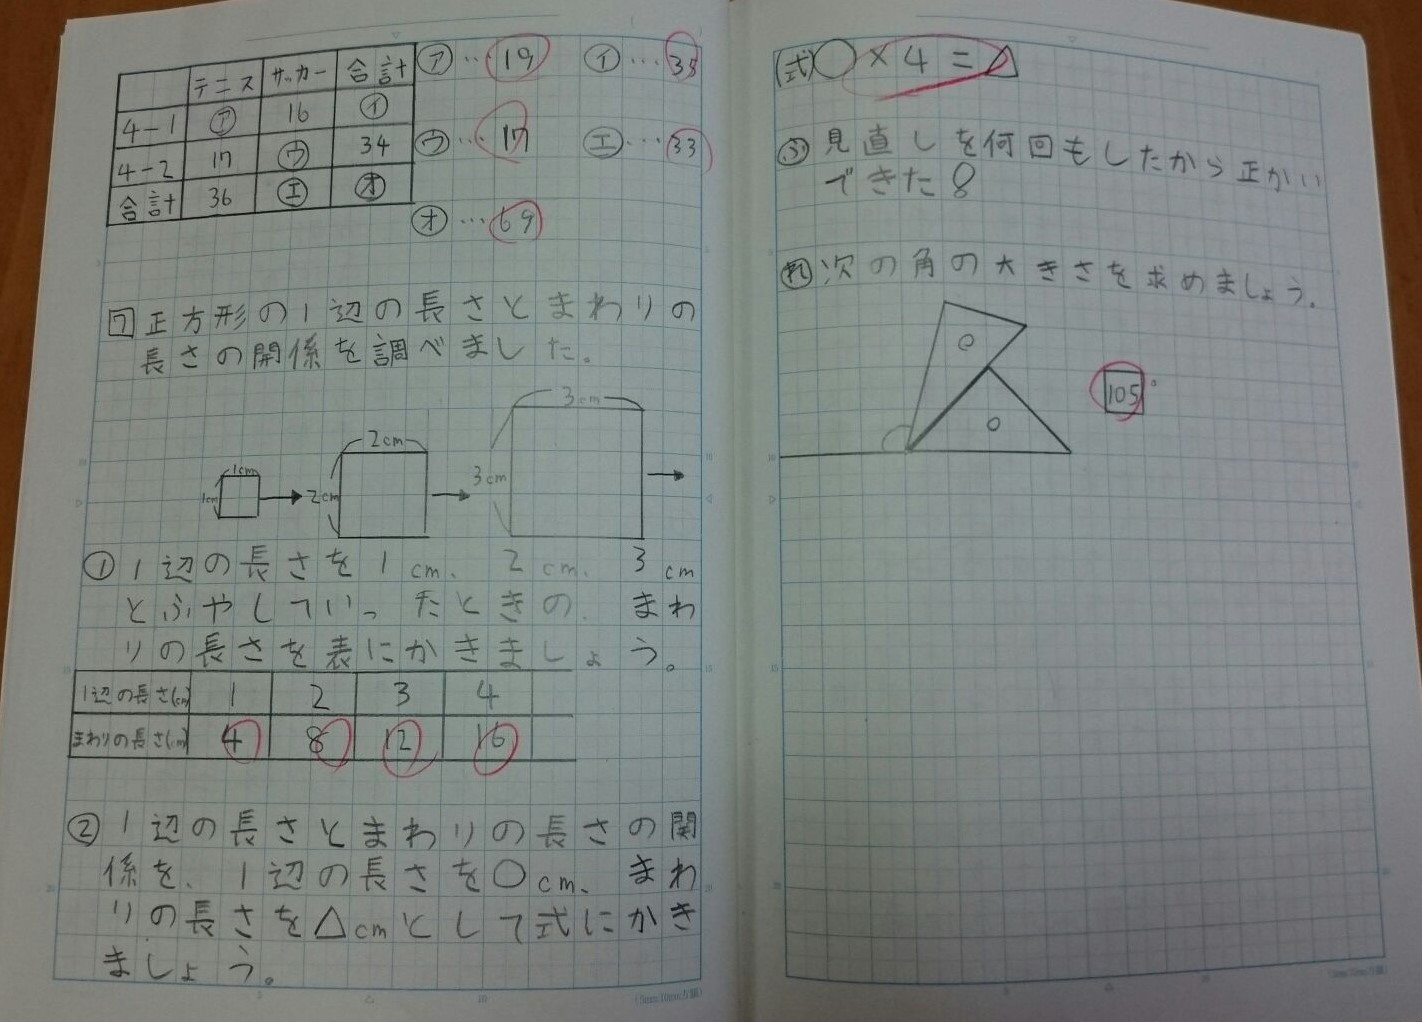 テニス サッカー 合計
4-1 ㋐ 16 ㋑
4-2 17 ㋒ 34
合計 36 ㋓ ㋔
㋐…19 ㋑…35
㋒…17 ㋓…33
㋔…69
7 正方形の1辺の長さとまわりの
長さの関係を調べました。
1cm 2cm 3cm
1cm 2cm 3cm
① 1辺の長さを1cm、2cm、3cm
とふやしていったときの、まわ
りの長さを表にかきましょう。
1辺の長さ(cm) 1 2 3 4
まわりの長さ(cm) 4 8 12 16
② 1辺の長さとまわりの長さの関
係を、1辺の長さを○cm、まわ
りの長さを△cmとして式にかき
ましょう。
(式)○×4=△
ふ 見直しを何回もしたから正かい
できた!
れ 次の角の大きさを求めましょう。
105°